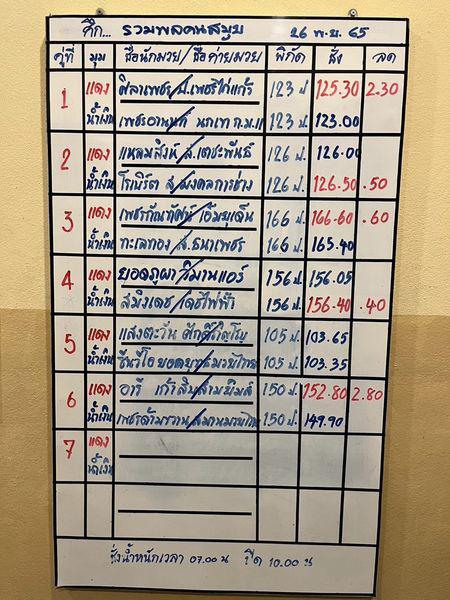 ศึก... รวมพลคนสมุย 26 พ.ย. 65
คู่ที่ มุม ชื่อนักมวย/ชื่อค่ายมวย พิกัด ชั่ง ลด
1 แดง ศิลาเพชร/ป.เพชรไก่แก้ว 123 ป. 125.30 2.30
น้ำเงิน เพชรอานนท์ 123 ป. 123.00
2 แดง แหลมสิงห์/ส.เดชะพันธ์ 126 ป. 126.00
น้ำเงิน โรเบิร์ต ส./มงคลการช่าง 126 ป. 126.50 .50
3 แดง เพชรกัณฑัศน์/เอ็มยูเด็น 166 ป. 166.60 .60
น้ำเงิน ทะเลทอง/ส.ธนาเพชร 166 ป. 165.40
4 แดง ยอดภูผา/วิมานแอร์ 156 ป. 156.05
น้ำเงิน สมิงเดช/เดชไฟฟ้า 156 ป. 156.40 .40
5 แดง แสงตะวัน 105 ป. 103.65
น้ำเงิน 105 ป. 103.35
6 แดง อาลี 150 ป. 152.80 2.80
น้ำเงิน เพชรด้ามขวาน 150 ป. 149.90
7 แดง
น้ำเงิน
ชั่งน้ำหนักเวลา 07.00 น ปิด 10.00 น